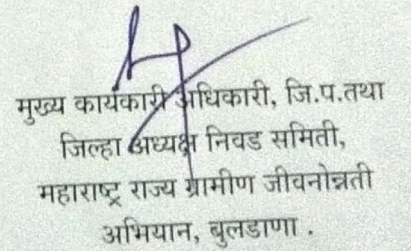 मुख्य कार्यकारी अधिकारी, जि.प.तथा
जिल्हा अध्यक्ष निवड समिती,
महाराष्ट्र राज्य ग्रामीण जीवनोन्नती
अभियान, बुलडाणा .